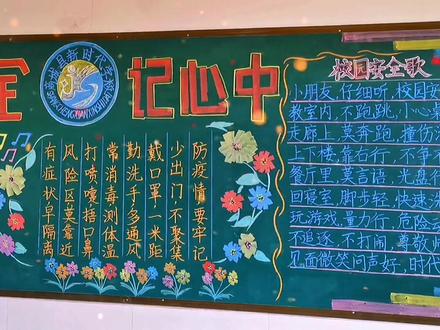 全
记心中
县新时代学校
防疫情要牢记
少出门,不聚集
戴口罩一米距
勤洗手多通风
常消毒测体温
打喷嚏捂口鼻
风险区莫靠近
有症状早隔离
校园安全歌
小朋友,仔细听,校园安
教室内,不跑跳,小心
走廊上,莫奔跑,撞伤
上下楼,靠右行,不争
餐厅里,莫言语,光盘
回寝室,脚步轻,快速
玩游戏,量力行,危险
不追逐,不打闹,尊敬
见面微笑问声好,时代